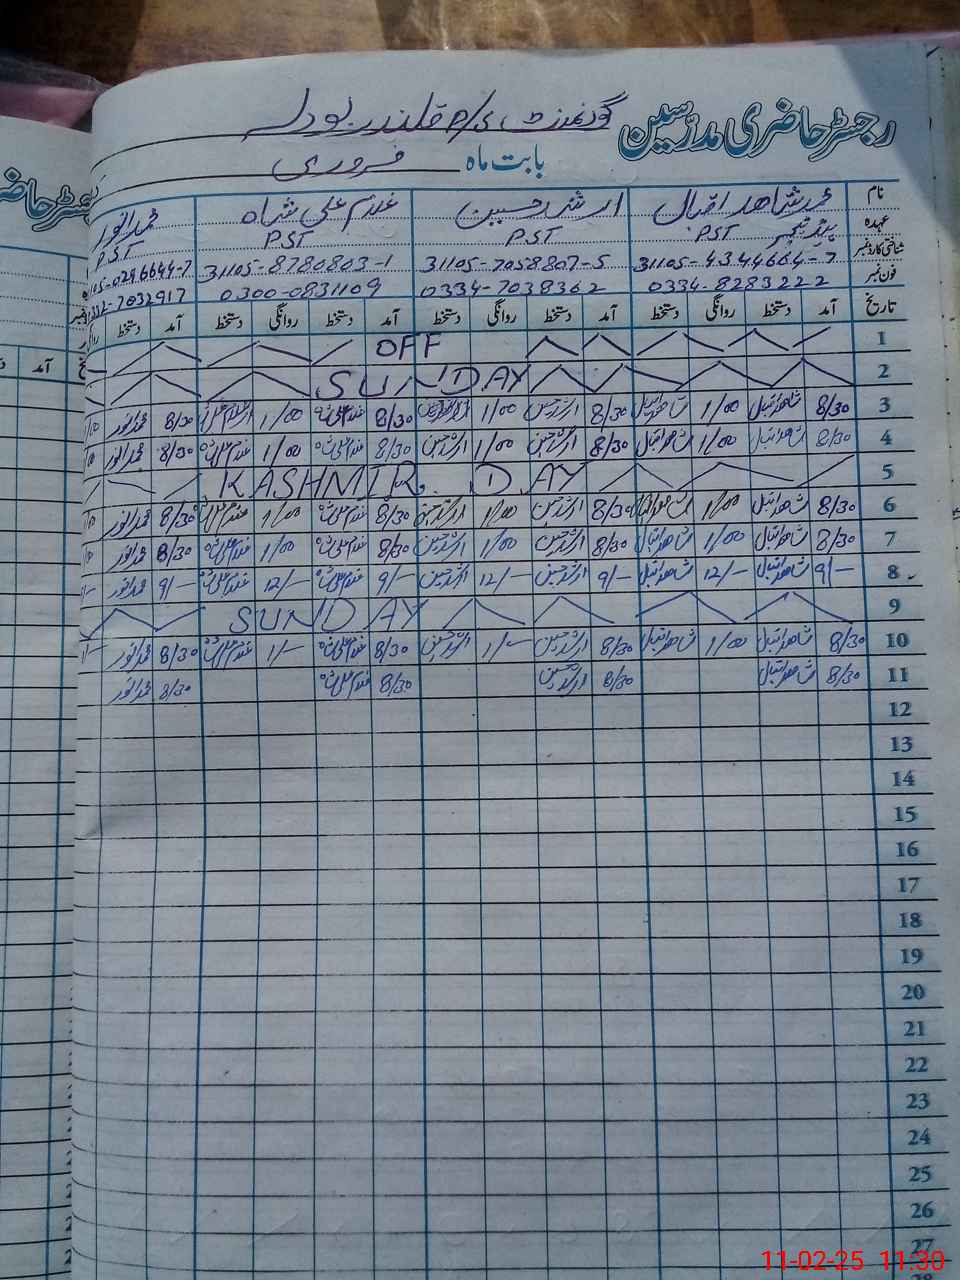 رجسٹر حاضری مدرسین گورنمنٹ P/S قلندر بودلہ
بابت ماہ فروری
نام محمد شاهد اقبال ارشد حسین غلام علی شاہ محمد انور
عہدہ PST ہیڈ ٹیچر PST PST PST
شناختی کارڈ نمبر 31105-4344664-7 31105-7058807-5 31105-8780803-1 105-0296644-7
فون نمبر 0334-8283222 0334-7038362 0300-0831109 332-7032917
تاریخ آمد دستخط روانگی دستخط آمد دستخط روانگی دستخط آمد دستخط روانگی دستخط آمد دستخط
1 OFF
2 SUNDAY
3 8/30 شاهد اقبال 1/00 شاهد اقبال 8/30 ارشد حسین 1/00 ارشد حسین 8/30 غلام علی شاہ 1/00 غلام علی شاہ 8/30 محمد انور 1/00
4 8/30 شاهد اقبال 1/00 شاهد اقبال 8/30 ارشد حسین 1/00 ارشد حسین 8/30 غلام علی شاہ 1/00 غلام علی شاہ 8/30 محمد انور
5 KASHMIR DAY
6 8/30 شاهد اقبال 1/00 شاهد اقبال 8/30 ارشد حسین 1/00 ارشد حسین 8/30 غلام علی شاہ 1/00 غلام علی شاہ 8/30 محمد انور
7 8/30 شاهد اقبال 1/00 شاهد اقبال 8/30 ارشد حسین 1/00 ارشد حسین 8/30 غلام علی شاہ 1/00 غلام علی شاہ 8/30 محمد انور
8 9/- شاهد اقبال 12/- شاهد اقبال 9/- ارشد حسین 12/- ارشد حسین 9/- غلام علی شاہ 12/- غلام علی شاہ 9/- محمد انور
9 SUNDAY
10 8/30 شاهد اقبال 1/00 شاهد اقبال 8/30 ارشد حسین 1/- ارشد حسین 8/30 غلام علی شاہ 1/- غلام علی شاہ 8/30 محمد انور
11 8/30 شاهد اقبال 8/30 ارشد حسین 8/30 غلام علی شاہ 8/30 محمد انور
12
13
14
15
16
17
18
19
20
21
22
23
24
25
26
27
28
11-02-25 11:30